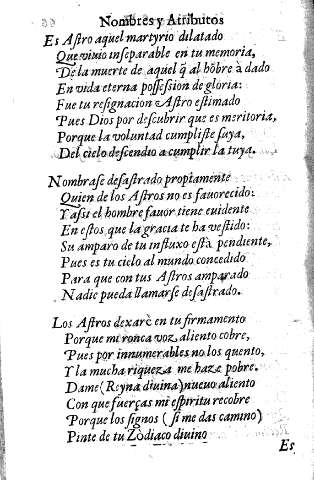 Nombres y Atributos
Es Astro aquel martyrio dilatado
Que viuio inseparable en tu memoria,
De la muerte de aquel q̃ al hõbre à dado
En vida eterna possession de gloria:
Fue tu resignacion Astro estimado
Pues Dios por descubrir que es meritoria,
Porque la voluntad cumpliste suya,
Del cielo descendio a cumplir la tuya.
Nombrase desastrado propiamente
Quien de los Astros no es fauorecido:
Y assi el hombre fauor tiene euidente
En estos que la gracia te ha vestido:
Su amparo de tu influxo està pendiente,
Pues es tu cielo al mundo concedido
Para que con tus Astros amparado
Nadie pueda llamarse desastrado.
Los Astros dexarè en tu firmamento
Porque mi ronca voz aliento cobre,
Pues por innumerables no los quento,
Y la mucha riqueza me haze pobre.
Dame (Reyna diuina) nueuo aliento
Con que fuerças mi espiritu recobre
Porque los signos (si me das camino)
Pinte de tu Zodiaco diuino
Es